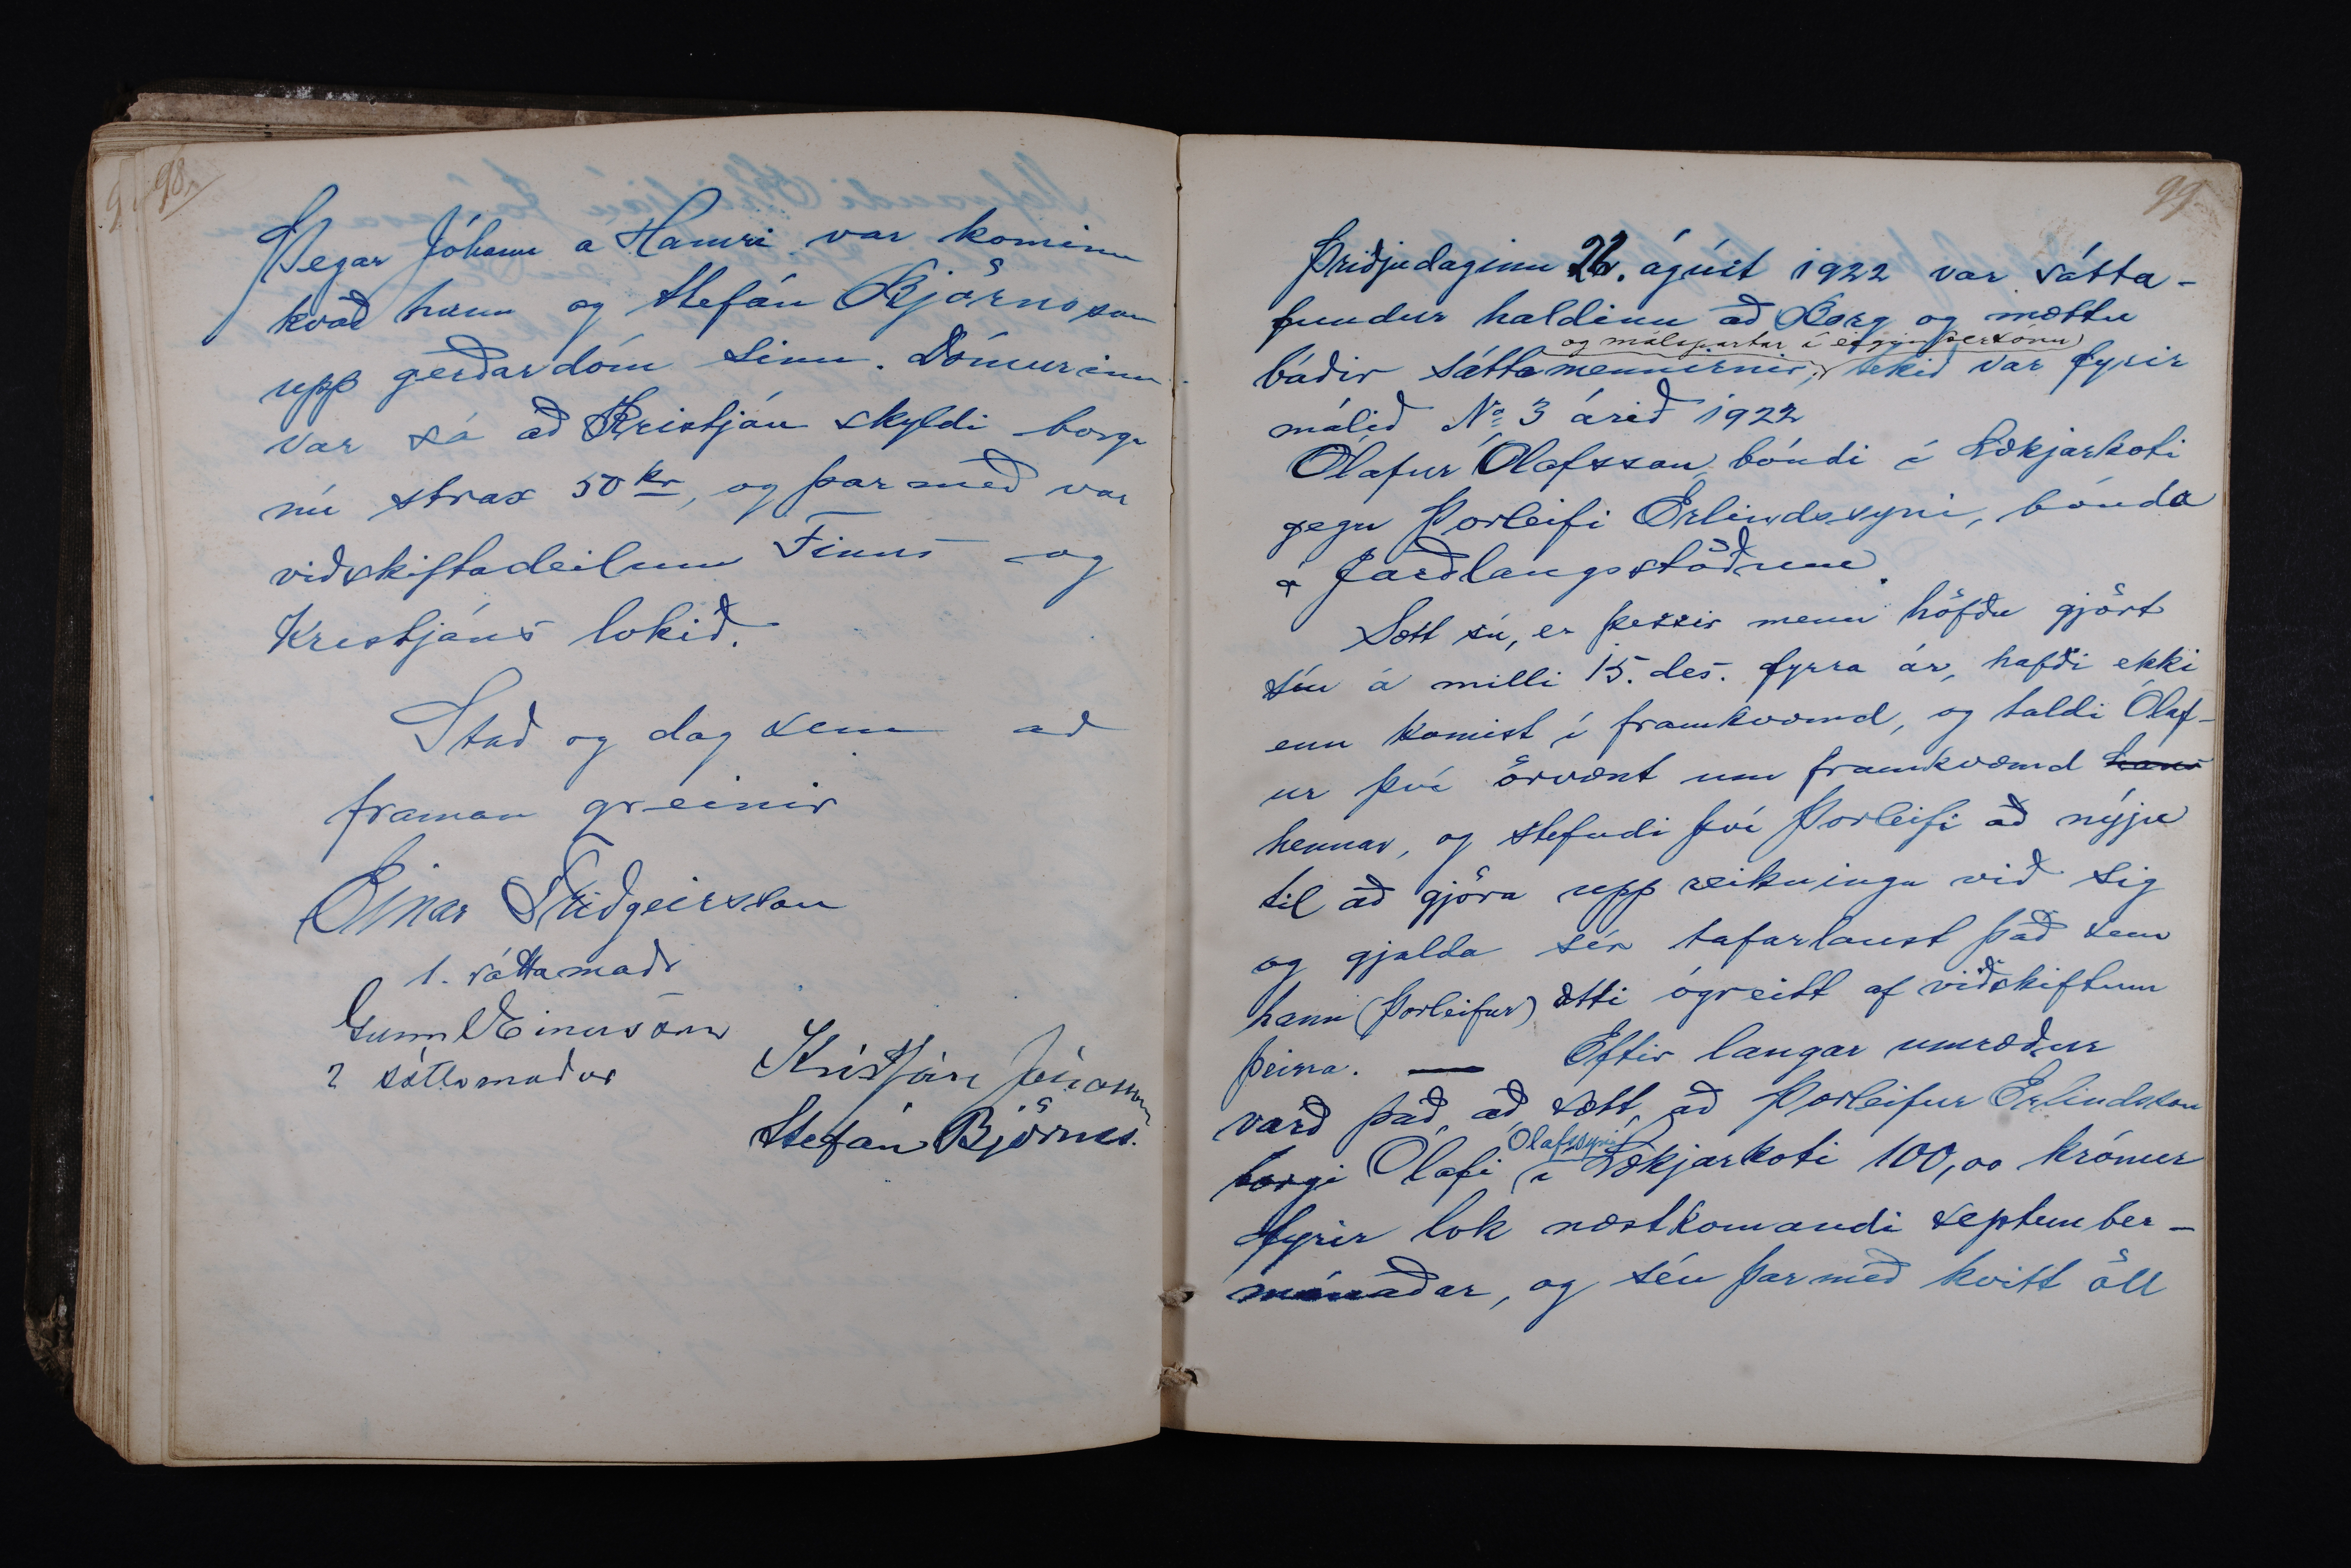 98.
Þegar Jóhann a Hamri var kominn
kvað hann og Stefán Björnsson
upp gerðardóm sinn. Dómurinn
var sá að Kristján skyldi borga
nú strax 50 kr, og þar með var
viðskiftadeilum Finns og
Kristjáns lokið.
Stað og dag sem að
framan greinir
Einar Friðgeirsson
1. sáttamaðr
Gunnl Einarsson
2 sáttamaður
Kristján Jónasson
Stefán Björnss.
99
Þriðjudaginn 22. ágúst 1922 var sátta-
fundur haldinn að Borg og mættu
og málspartar í eigin persónu
báðir sáttamennirnir, tekið var fyrir
málið No 3 árið 1922
Ólafur Ólafsson bóndi í Lækjarkoti
gegn Þorleifi Erlindssyni, bónda
á Jarðlangsstöðum.
Sætt sú, er þessir menn höfðu gjört
sín á milli 15. des. fyrra ár, hafði ekki
enn komist í framkvæmd, og taldi Ólaf-
ur því örvænt um framkvæmd hans
hennar, og stefndi því Þorleifi að nýju
til að gjöra upp reikninga við sig
og gjalda sér tafarlaust það sem
hann (Þorleifur) ætti ógreitt af viðskiftum
þeirra. — Eftir langar umræður
varð það, að sætt, að Þorleifur Erlindsson
Ólafssyni
borgi Ólafi í Lækjarkoti 100,00 krónur
fyrir lok næstkomandi september-
mánaðar, og séu þar með kvitt öll